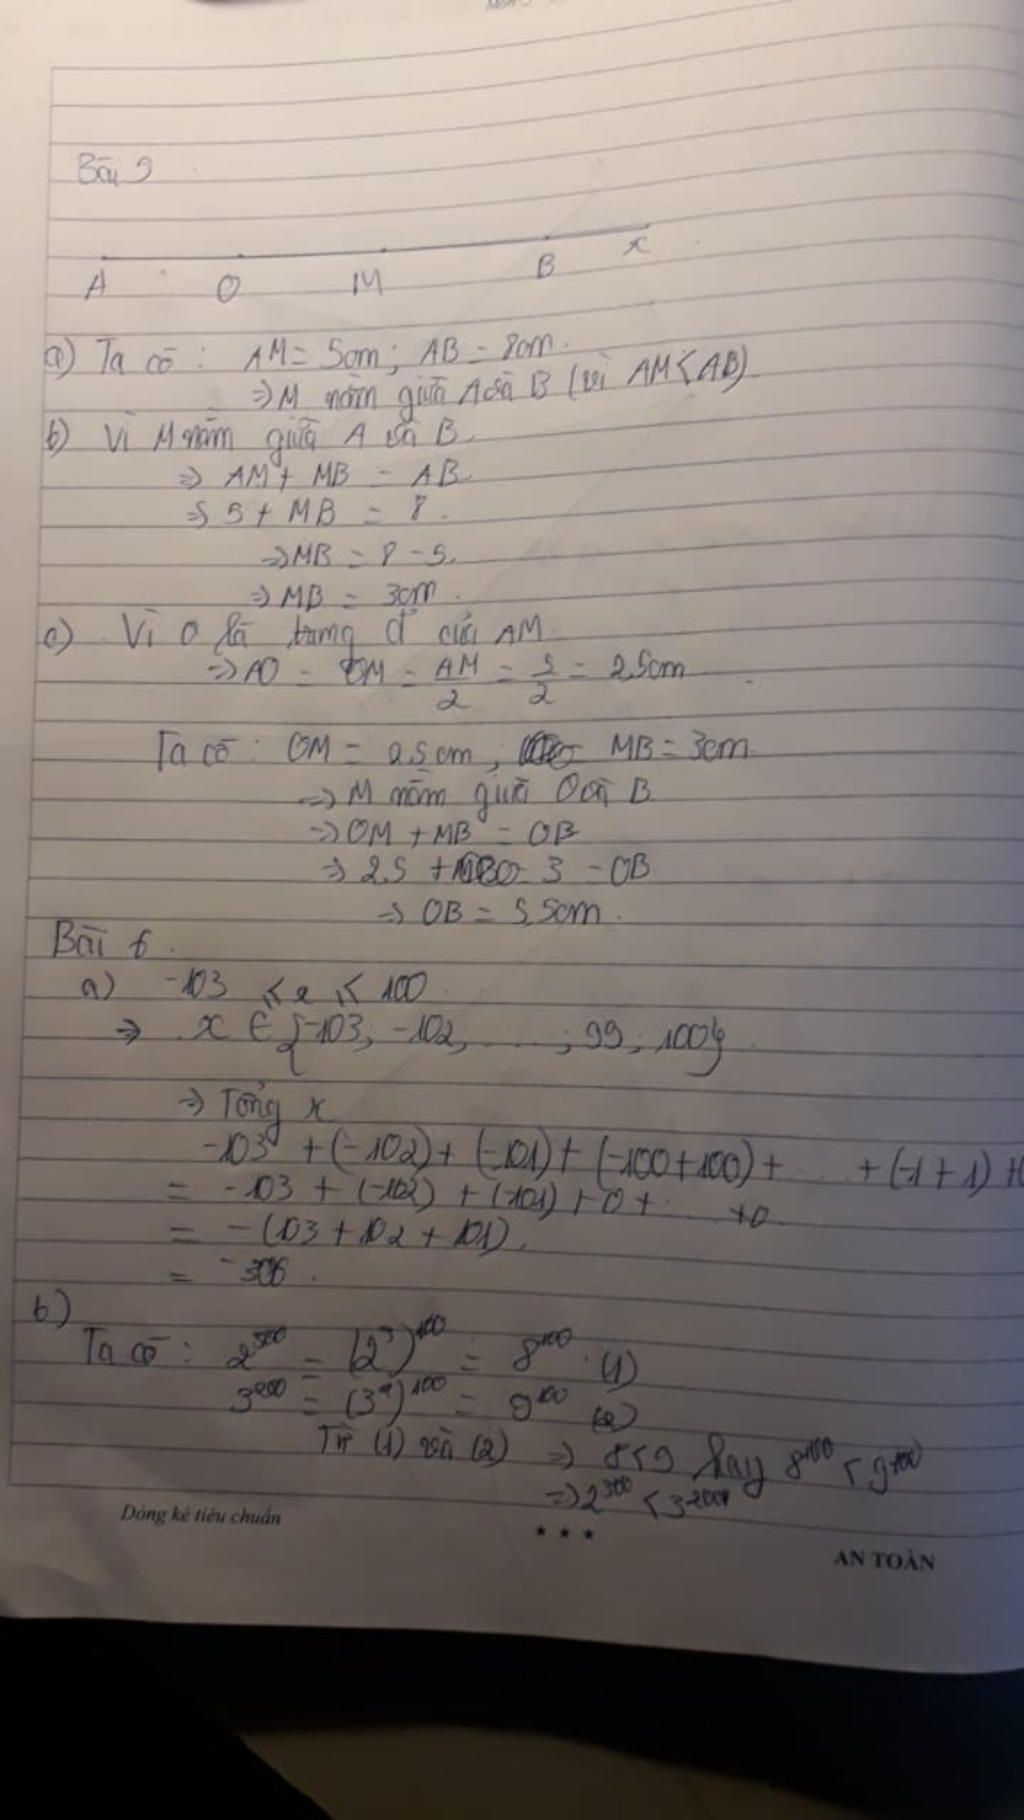 Bài 5
A O M B x
a) Ta có : AM = 5cm ; AB = 8cm.
⇒ M nằm giữa A và B (vì AM < AB)
b) Vì M nằm giữa A và B
⇒ AM + MB = AB.
⇒ 5 + MB = 8.
⇒ MB = 8 - 5.
⇒ MB = 3cm.
c) Vì O là trung đ' của AM
⇒ AO = OM = AM/2 = 5/2 = 2,5cm
Ta có : OM = 2,5cm ; MB = 3cm.
⇒ M nằm giữa O và B
⇒ OM + MB = OB
⇒ 2,5 + 3 = OB
⇒ OB = 5,5cm.
Bài 6.
a) -103 ≤ x ≤ 100.
⇒ x ∈ {-103; -102; ....; 99; 100}.
⇒ Tổng x
-103 + (-102) + (-101) + (-100+100) + ... + (-1+1) +
= -103 + (-102) + (-101) + 0 + ... +0
= -(103 + 102 + 101).
= -306.
b)
Ta có : 2³⁰⁰ = (2³)¹⁰⁰ = 8¹⁰⁰. (1)
3²⁰⁰ = (3²)¹⁰⁰ = 9¹⁰⁰ (2)
Từ (1) và (2) ⇒ 8<9 hay 8¹⁰⁰ < 9¹⁰⁰
⇒ 2³⁰⁰ < 3²⁰⁰
Dòng kẻ tiêu chuẩn
★ ★ ★
AN TOÀN